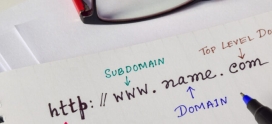 TOP LEVEL DO
SUBDOMAIN
http://www.name.com
DOMAIN